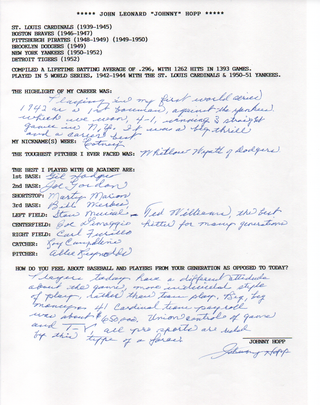 ***** JOHN LEONARD "JOHNNY" HOPP *****
ST. LOUIS CARDINALS (1939-1945)
BOSTON BRAVES (1946-1947)
PITTSBURGH PIRATES (1948-1949) (1949-1950)
BROOKLYN DODGERS (1949)
NEW YORK YANKEES (1950-1952)
DETROIT TIGERS (1952)
COMPILED A LIFETIME BATTING AVERAGE OF .296, WITH 1262 HITS IN 1393 GAMES.
PLAYED IN 5 WORLD SERIES, 1942-1944 WITH THE ST. LOUIS CARDINALS & 1950-51 YANKEES.
THE HIGHLIGHT OF MY CAREER WAS:
Playing in my first world series
1942 as a 1st baseman, against the yankees
which we won, 4-1, winning 3 straight
games in N.Y. It was a big thrill
and a career best
MY NICKNAME(S) WERE: Cotney
THE TOUGHEST PITCHER I EVER FACED WAS: Whitlow Wyatt of Dodgers
THE BEST I PLAYED WITH OR AGAINST ARE:
1st BASE: Gil Hodges
2nd BASE: Joe Gordon
SHORTSTOP: Marty Marion
3rd BASE: Bill
LEFT FIELD: Stan Musial - Ted Williams, the best
CENTERFIELD: Joe Dimaggio hitter for many generations
RIGHT FIELD: Carl Furillo
CATCHER: Roy Campanella
PITCHER: Allie Reynolds
HOW DO YOU FEEL ABOUT BASEBALL AND PLAYERS FROM YOUR GENERATION AS OPPOSED TO TODAY?
Players today have a different attitude
about the game, more individual style
of play, rather than team play. Big, big
money. Cardinal team payroll
was about $650,000. Union controls of game
and T.V., all pro sports are ruled
by this type of
JOHNNY HOPP
Johnny Hopp